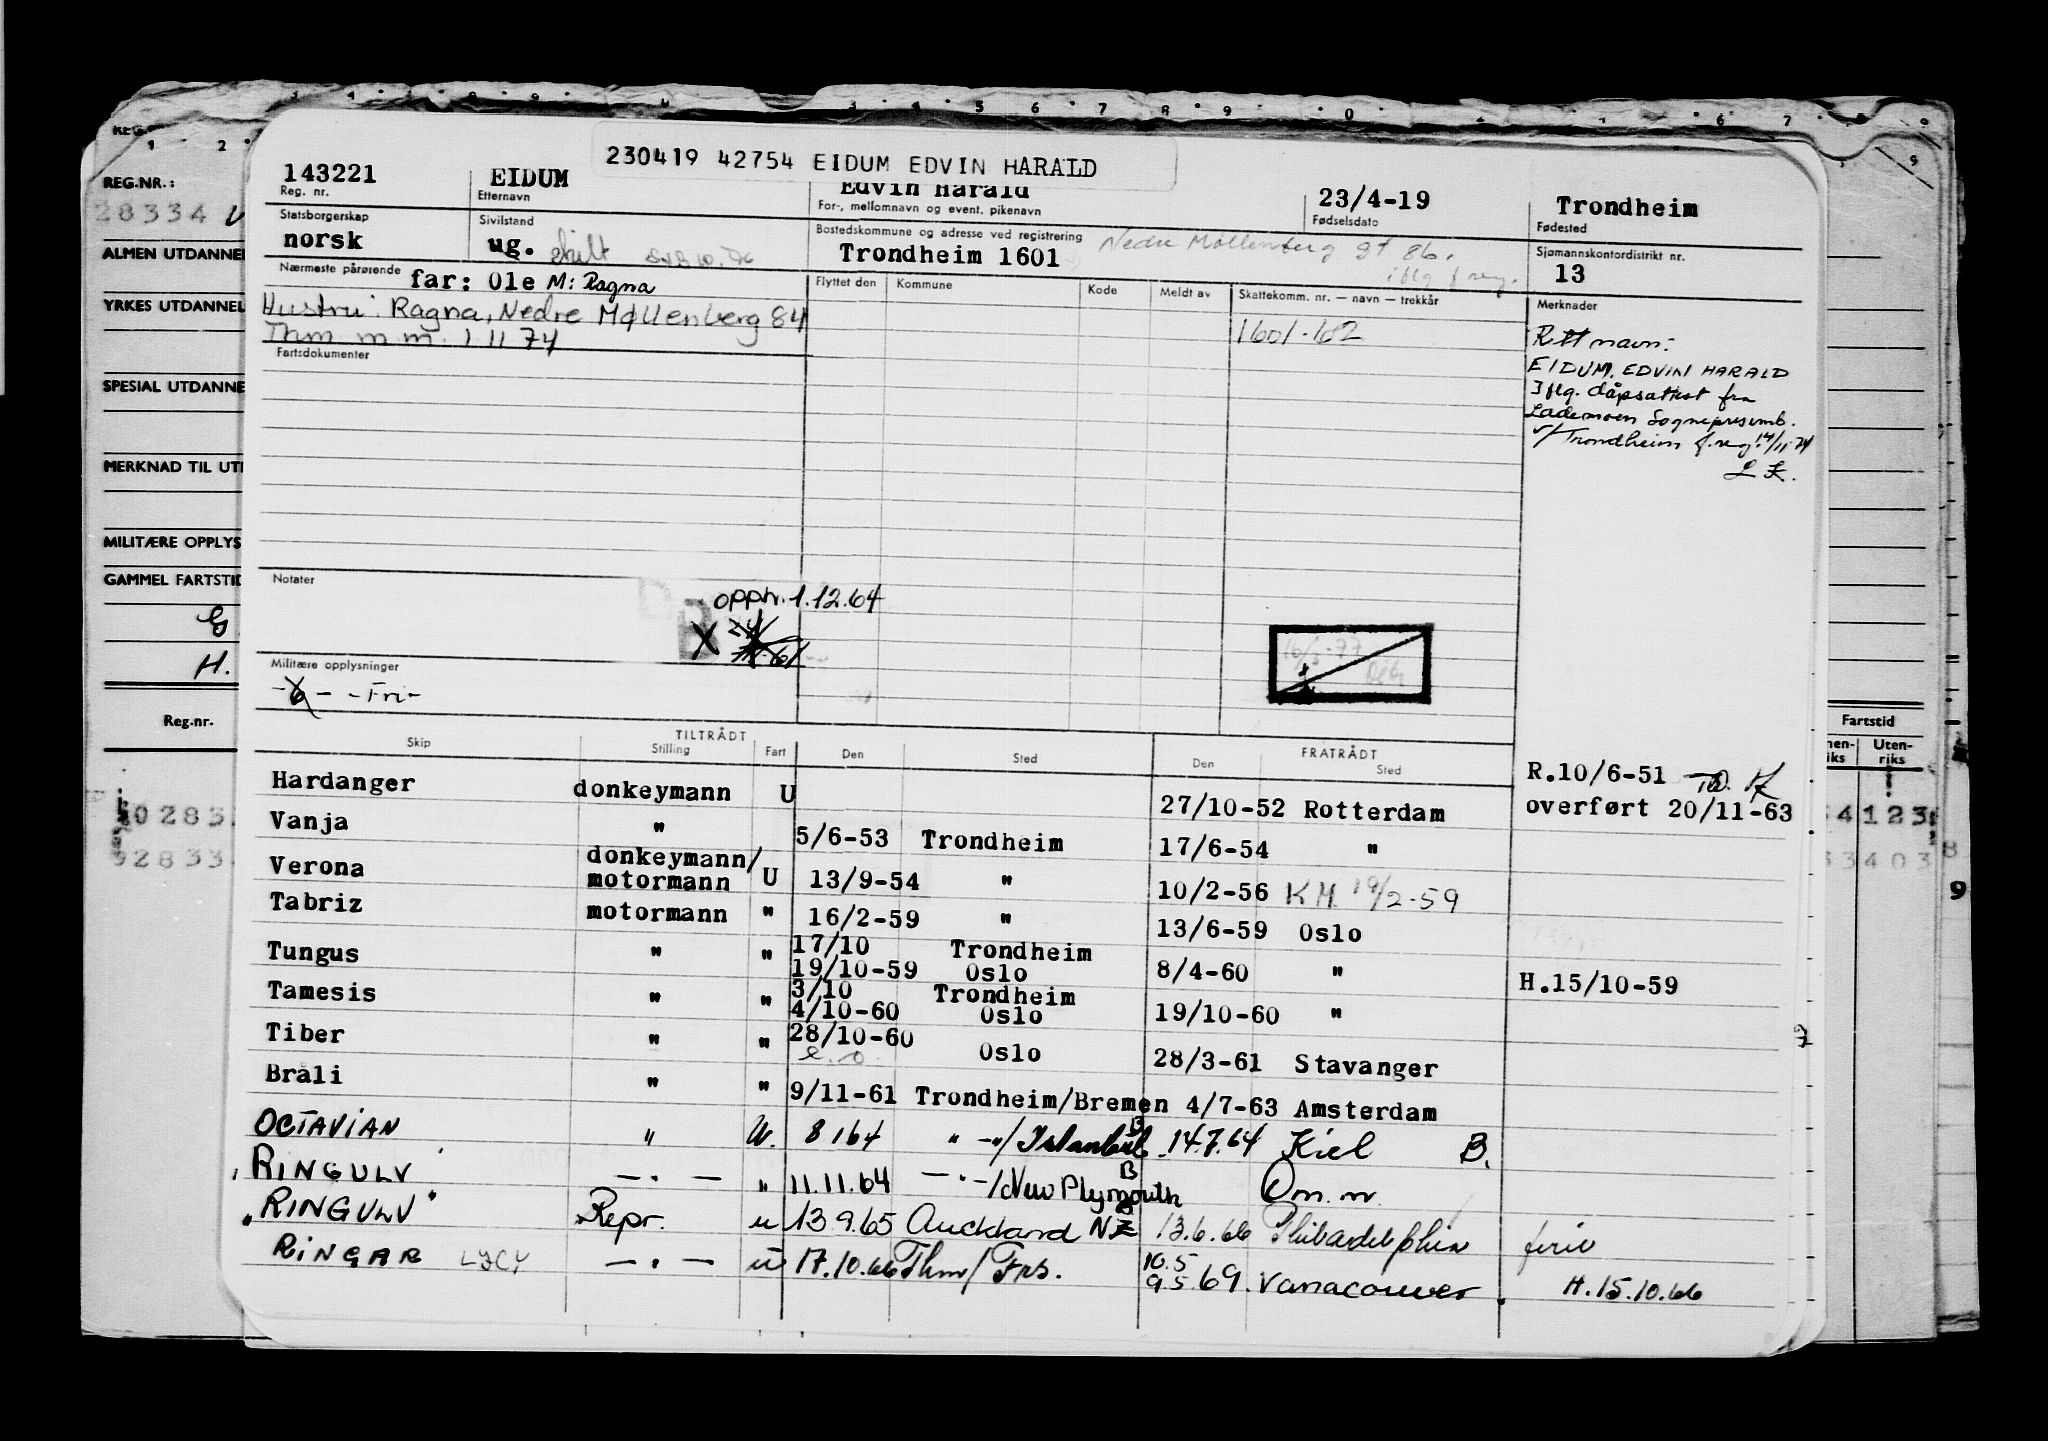 230419 42754 EIDUM EDVIN HARALD
143221 EIDUM Edvin Harald 23/4-19 Trondheim
Reg. nr. Etternavn For-, mellomnavn og event. pikenavn Fødselsdato Fødested
Statsborgerskap Sivilstand Bostedskommune og adresse ved registrering Sjømannskontordistrikt nr.
norsk ug. skilt Trondheim 1601 Nedre Møllenberg gt 86. 13
iflg f reg.
Nærmeste pårørende far: Ole M: Ragna Flyttet den Kommune Kode Meldt av Skattekomm. nr. — navn — trekkår Merknader
Hustru: Ragna, Nedre Møllenberg 84
Thm m.m. 1 11 74
1601-162
Rett navn:
EIDUM, EDVIN HARALD
Iflg. dåpsattest fra
Lademoen Sognepresemb.
v/Trondheim f.reg. 14/11-74
L K.
Fartsdokumenter
Notater
opph. 1.12.64
X
16/5-77
Militære opplysninger
- -Fri-
TILTRÅDT FRATRÅDT
Skip Stilling Fart Den Sted Den Sted
R.10/6-51
Hardanger donkeymann U 27/10-52 Rotterdam overført 20/11-63
Vanja " 5/6-53 Trondheim 17/6-54 "
Verona donkeymann/
motormann U 13/9-54 " 10/2-56 KM 19/2-59
Tabriz motormann " 16/2-59 " 13/6-59 Oslo
Tungus " " 17/10 Trondheim
19/10-59 Oslo 8/4-60 " H.15/10-59
Tamesis " " 3/10 Trondheim
4/10-60 Oslo 19/10-60 "
Tiber " " 28/10-60 Oslo 28/3-61 Stavanger
Bråli " " 9/11-61 Trondheim/Bremen 4/7-63 Amsterdam
OCTAVIAN " U. 8 1 64 " -"/Istanbul B 14.7.64 Kiel B.
RINGULV — " — " 11.11.64 — " —/New Plymouth B Om.m.
"RINGULV" Repr. u 13.9.65 Auckland NZ 13.6.66 Philadelphia ferie
RINGAR LJCY — " — u 17.10.66 Thm/Frs. 10.5
9.5.69. Vanacouver. H.15.10.66
REG.NR.:
28334
ALMEN UTDANNE
YRKES UTDANNEL
SPESIAL UTDANNE
MERKNAD TIL UT
MILITÆRE OPPLYS
GAMMEL FARTSTID
G
H.
Reg.nr.
Fartstid
Uten-
riks